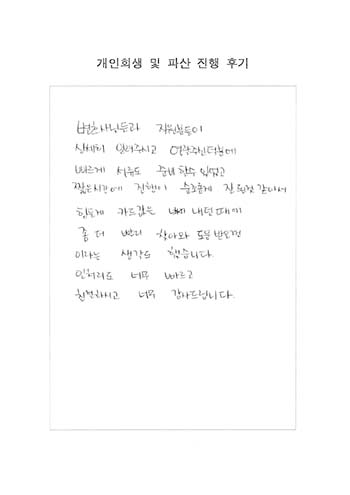 개인회생 및 파산 진행 후기
변호사님들과 직원분들이
상세히 알려주시고 연락주신덕분에
빠르게 서류도 준비 할수 있었고
짧은시간에 진행이 순조롭게 잘 된것 같아서
힘들게 카드값는 내던때에
좀 더 빨리 찾아와 도움받을걸
이라는 생각도 했습니다.
일처리도 너무 빠르고
친절하시고 너무 감사드립니다.